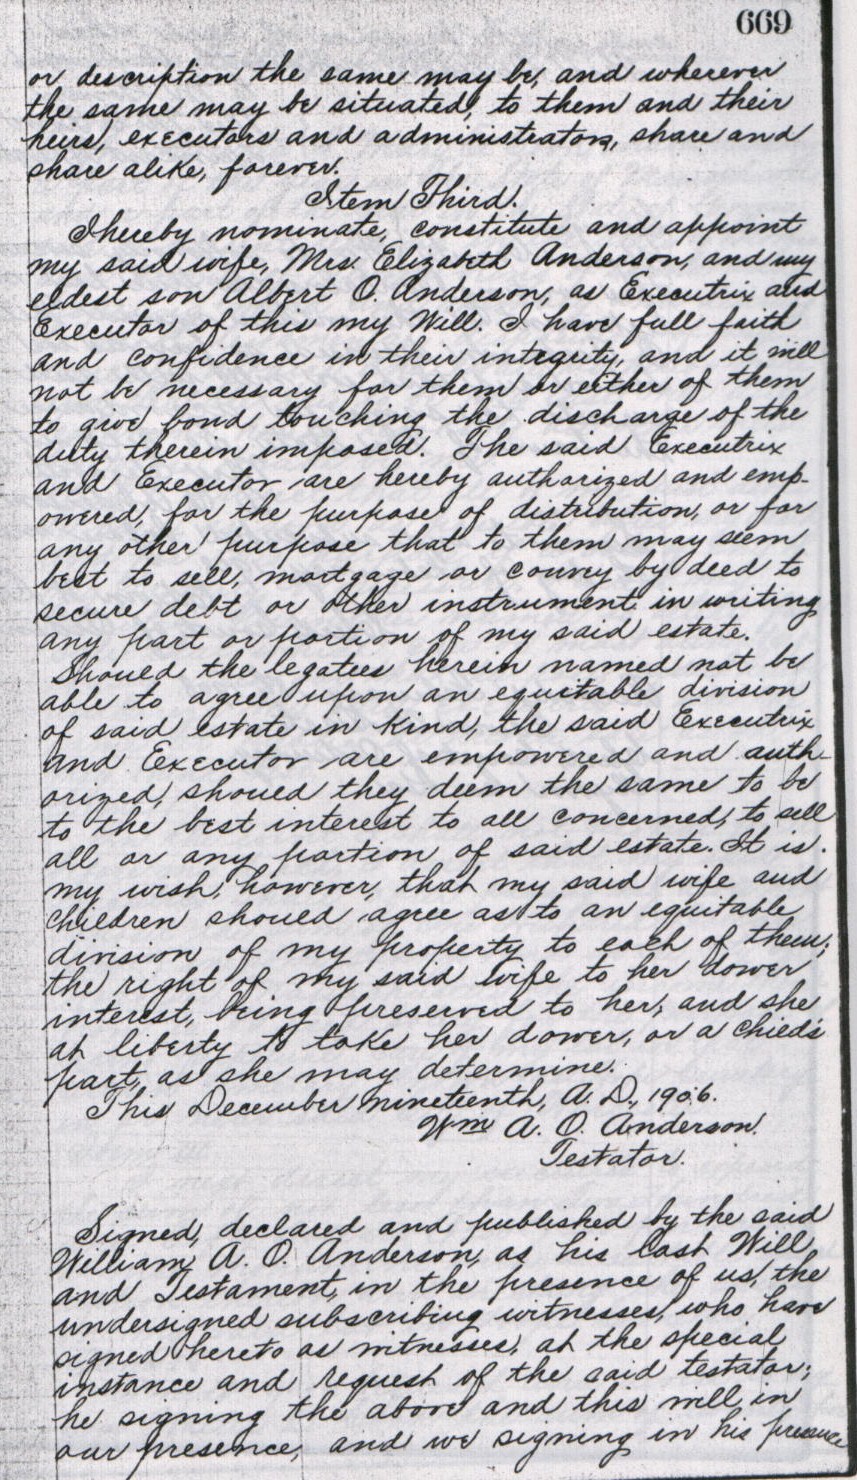 669
or description the same may be, and wherever
the same may be situated, to them and their
heirs, executors and administrators, share and
share alike, forever.
Item Third.
I hereby nominate, constitute and appoint
my said wife, Mrs. Elizabeth Anderson, and my
eldest son Albert O. Anderson, as Executrix and
Executor of this my Will. I have full faith
and confidence in their integrity, and it will
not be necessary for them or either of them
to give bond touching the discharge of the
duty therein imposed. The said Executrix
and Executor are hereby authorized and emp-
owered, for the purpose of distribution, or for
any other purpose that to them may seem
best to sell, mortgage or convey by deed to
secure debt or other instrument in writing
any part or portion of my said estate.
Should the legatees herein named not be
able to agree upon an equitable division
of said estate in kind, the said Executrix
and Executor are empowered and auth-
orized, should they deem the same to be
to the best interest to all concerned, to sell
all or any portion of said estate. It is
my wish, however, that my said wife and
children should agree as to an equitable
division of my property to each of them;
the right of my said wife to her dower
interest, being preserved to her, and she
at liberty to take her dower, or a child's
part, as she may determine.
This December nineteenth, A. D., 1906.
Wm A. O. Anderson.
Testator.
Signed, declared and published by the said
William A. O. Anderson, as his last Will
and Testament, in the presence of us, the
undersigned subscribing witnesses, who have
signed hereto as witnesses, at the special
instance and request of the said testator;
he signing the above and this will in
our presence, and we signing in his presence